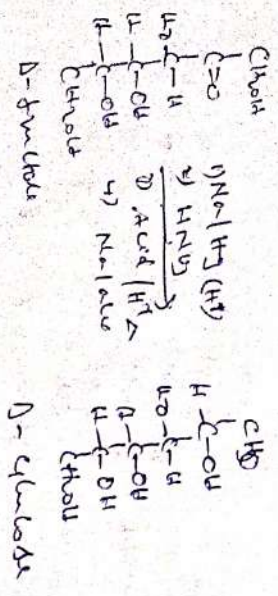 CH2OH
C=O
HO-C-H
H-C-OH
H-C-OH
CH2OH
D-fructose
1) Na/Hg (H+)
2) HNO3
3) Acid/H+ Δ
4) Na/alc
CHO
H-C-OH
HO-C-H
H-C-OH
H-C-OH
CH2OH
D-Glucose